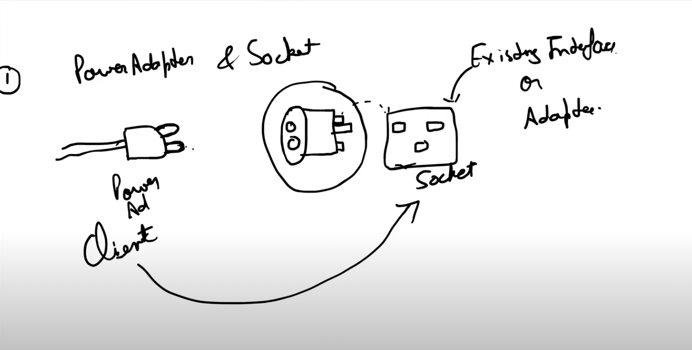 ① Power Adapter & Socket
Existing Interface
or
Adaptee.
Socket
Power
Ad
Client